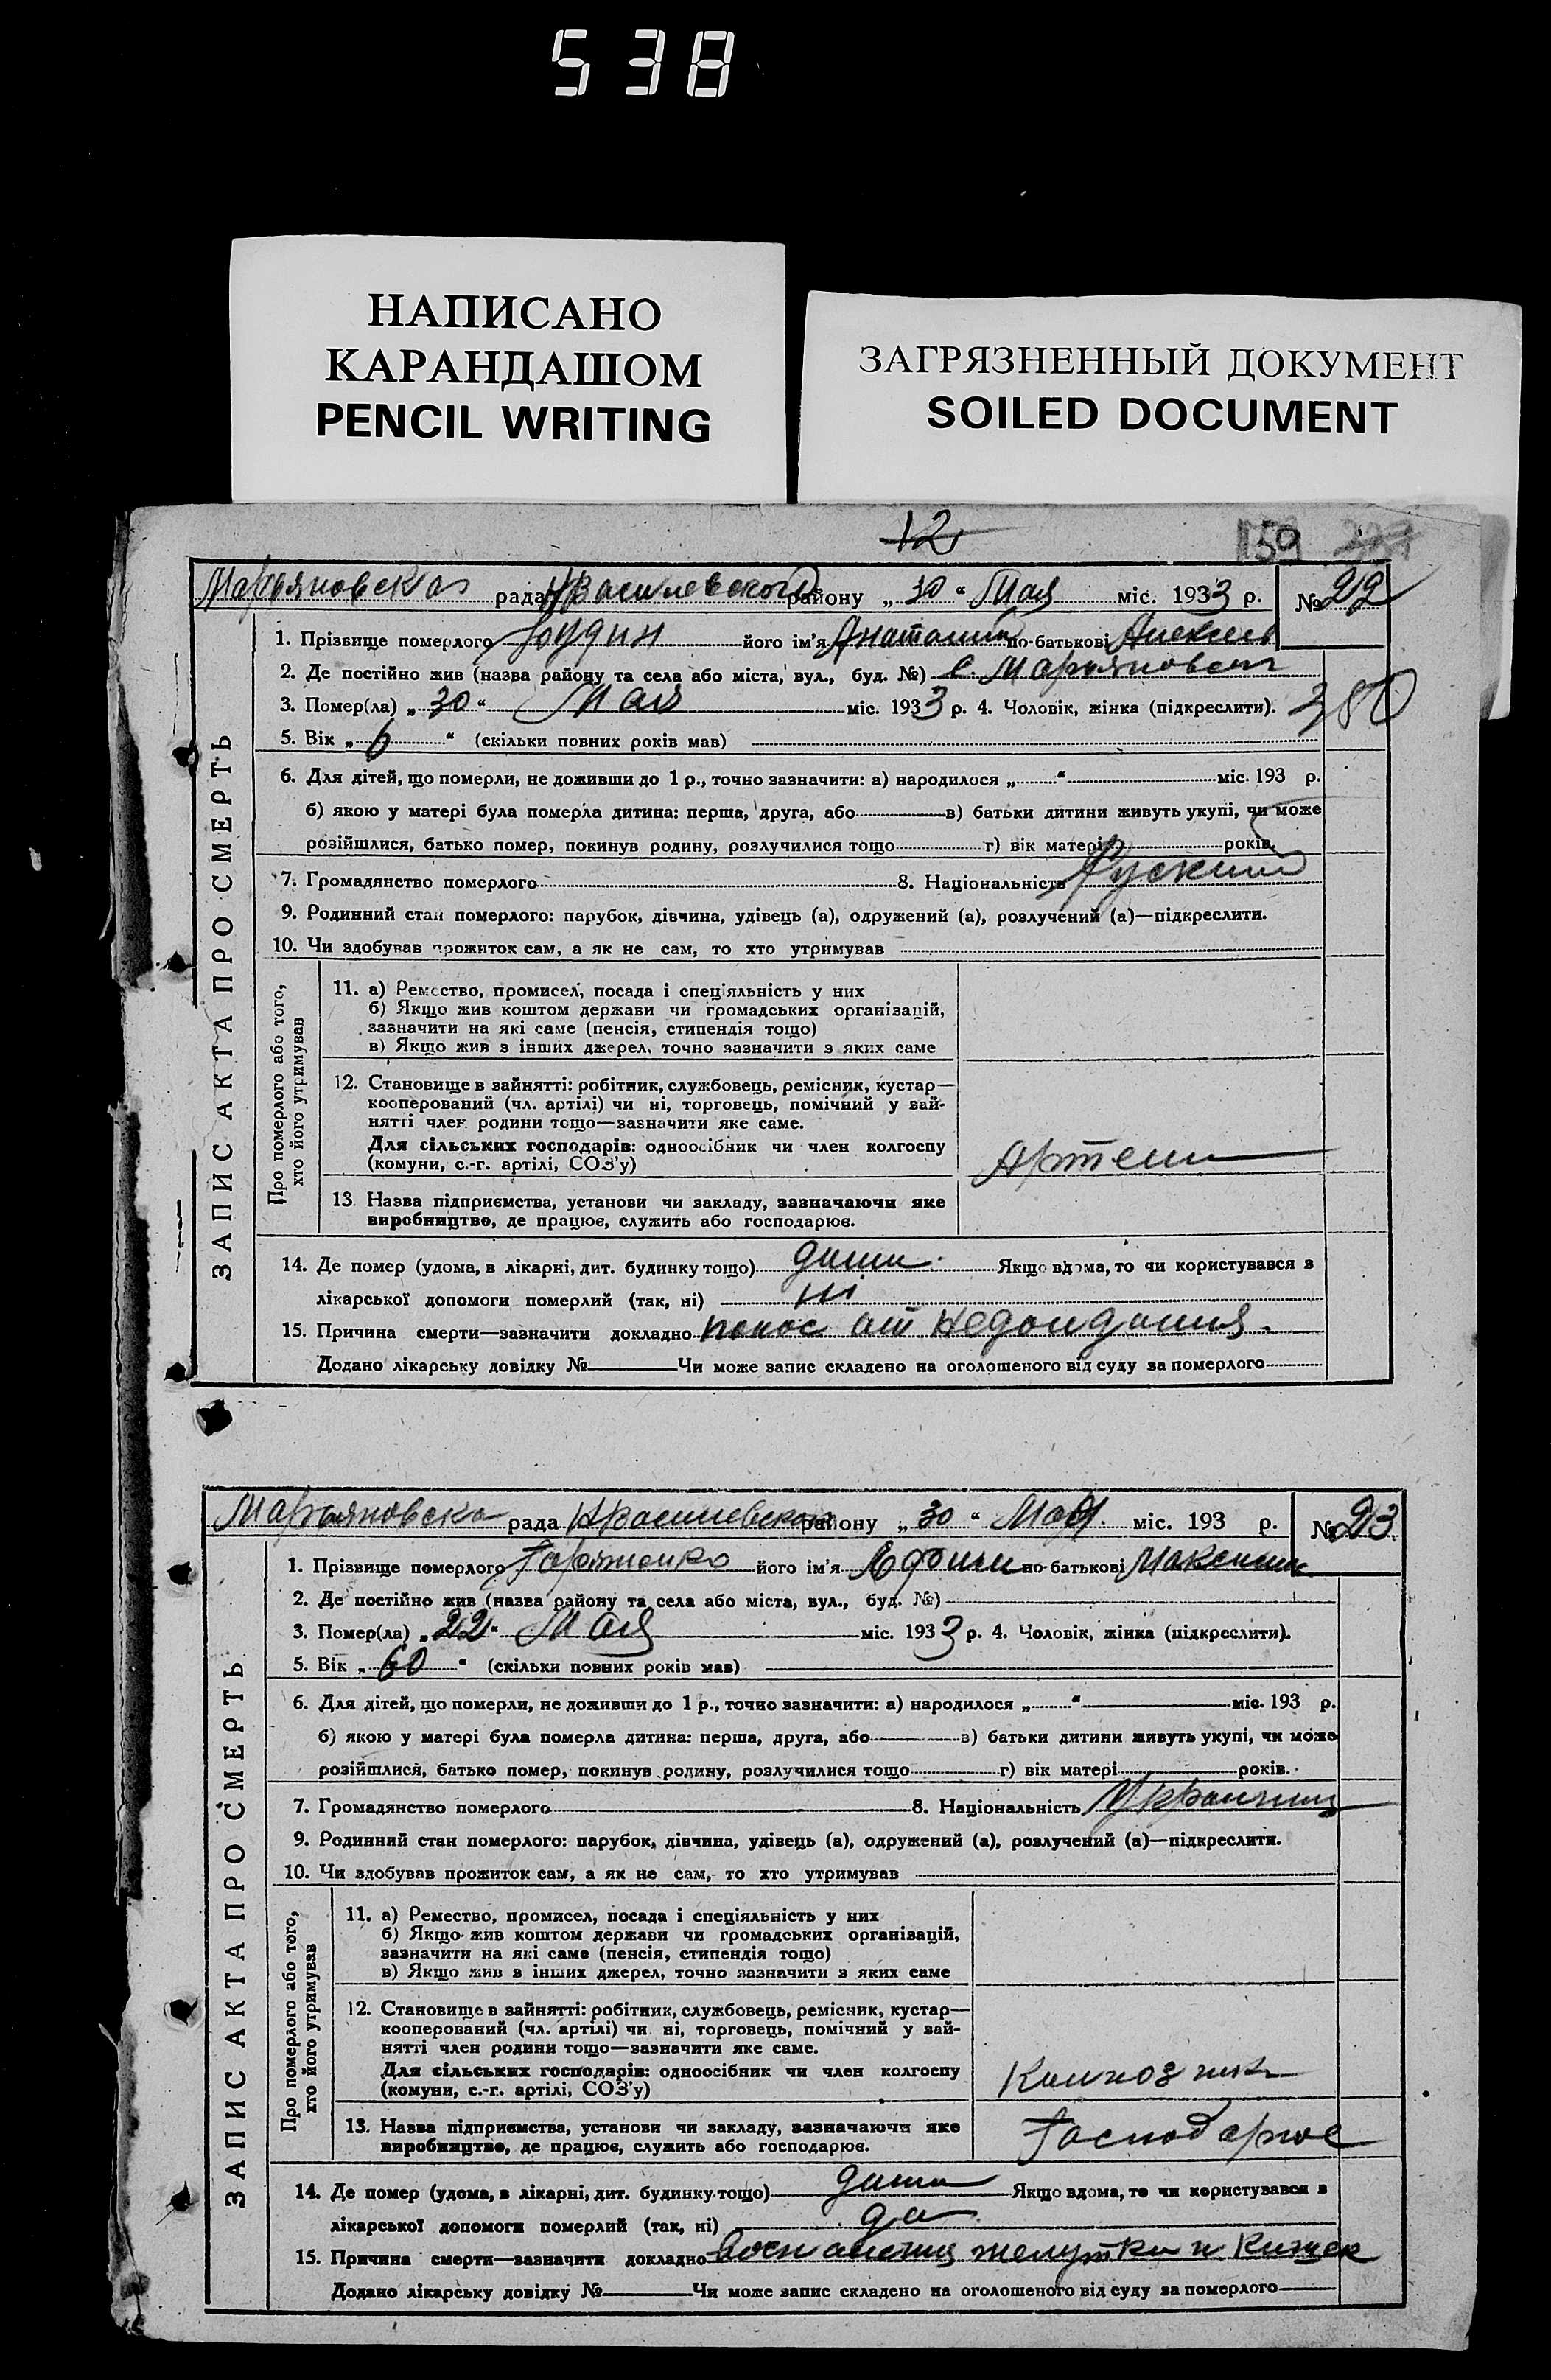 538
НАПИСАНО
КАРАНДАШОМ
PENCIL WRITING
ЗАГРЯЗНЕННЫЙ ДОКУМЕНТ
SOILED DOCUMENT
12
159
Марьяновская рада района „30“ Мая міс. 1933 р. № 22
1. Прізвище померлого його ім'я Анатолий по-батькові
2. Де постійно жив (назва району та села або міста, вул., буд. №) с. Марьяновка
3. Помер(ла) „30“ Мая міс. 1933 р. 4. Чоловік, жінка (підкреслити).
380
5. Вік „6“ (скільки повних років мав)
6. Для дітей, що померли, не доживши до 1 р., точно зазначити: а) народилося „ “ міс. 193 р.
б) якою у матері була померла дитина: перша, друга, або в) батьки дитини живуть укупі, чи може
розійшлися, батько помер, покинув родину, розлучилися тощо г) вік матері років.
7. Громадянство померлого 8. Національність Руский
9. Родинний стан померлого: парубок, дівчина, удівець (а), одружений (а), розлучений (а)—підкреслити.
10. Чи здобував прожиток сам, а як не сам, то хто утримував
ЗАПИС АКТА ПРО СМЕРТЬ
Про померлого або того,
хто його утримував
11. а) Ремество, промисел, посада і спеціяльність у них
б) Якщо жив коштом держави чи громадських організацій,
зазначити на які саме (пенсія, стипендія тощо)
в) Якщо жив з інших джерел, точно зазначити з яких саме
12. Становище в зайнятті: робітник, службовець, ремісник, кустар—
кооперований (чл. артілі) чи ні, торговець, помічний у зай-
нятті член родини тощо—зазначити яке саме.
Для сільських господарів: одноосібник чи член колгоспу
(комуни, с.-г. артілі, СОЗ'у)
Артели
13. Назва підприємства, установи чи закладу, зазначаючи яке
виробництво, де працює, служить або господарює.
14. Де помер (удома, в лікарні, дит. будинку тощо) дома. Якщо вдома, то чи користувався з
лікарської допомоги померлий (так, ні) ні
15. Причина смерти—зазначити докладно понос от недоидания.
Додано лікарську довідку № Чи може запис складено на оголошеного від суду за померлого
Марьяновска рада району „30“ Мая. міс. 193 р. № 23.
1. Прізвище померлого його ім'я по-батькові Максим
2. Де постійно жив (назва району та села або міста, вул., буд. №)
3. Помер(ла) „22“ Мая міс. 1933 р. 4. Чоловік, жінка (підкреслити).
5. Вік „60“ (скільки повних років мав)
6. Для дітей, що померли, не доживши до 1 р., точно зазначити: а) народилося „ “ міс. 193 р.
б) якою у матері була померла дитина: перша, друга, або в) батьки дитини живуть укупі, чи може
розійшлися, батько помер, покинув родину, розлучилися тощо г) вік матері років.
7. Громадянство померлого 8. Національність
9. Родинний стан померлого: парубок, дівчина, удівець (а), одружений (а), розлучений (а)—підкреслити.
10. Чи здобував прожиток сам, а як не сам, то хто утримував
ЗАПИС АКТА ПРО СМЕРТЬ
Про померлого або того,
хто його утримував
11. а) Ремество, промисел, посада і спеціяльність у них
б) Якщо жив коштом держави чи громадських організацій,
зазначити на які саме (пенсія, стипендія тощо)
в) Якщо жив з інших джерел, точно зазначити з яких саме
12. Становище в зайнятті: робітник, службовець, ремісник, кустар—
кооперований (чл. артілі) чи ні, торговець, помічний у зай-
нятті член родини тощо—зазначити яке саме.
Для сільських господарів: одноосібник чи член колгоспу
(комуни, с.-г. артілі, СОЗ'у)
13. Назва підприємства, установи чи закладу, зазначаючи яке
виробництво, де працює, служить або господарює.
Господарює
14. Де помер (удома, в лікарні, дит. будинку тощо) дома Якщо вдома, то чи користувався з
лікарської допомоги померлий (так, ні) да
15. Причина смерти—зазначити докладно желутка и кишек
Додано лікарську довідку № Чи може запис складено на оголошеного від суду за померлого